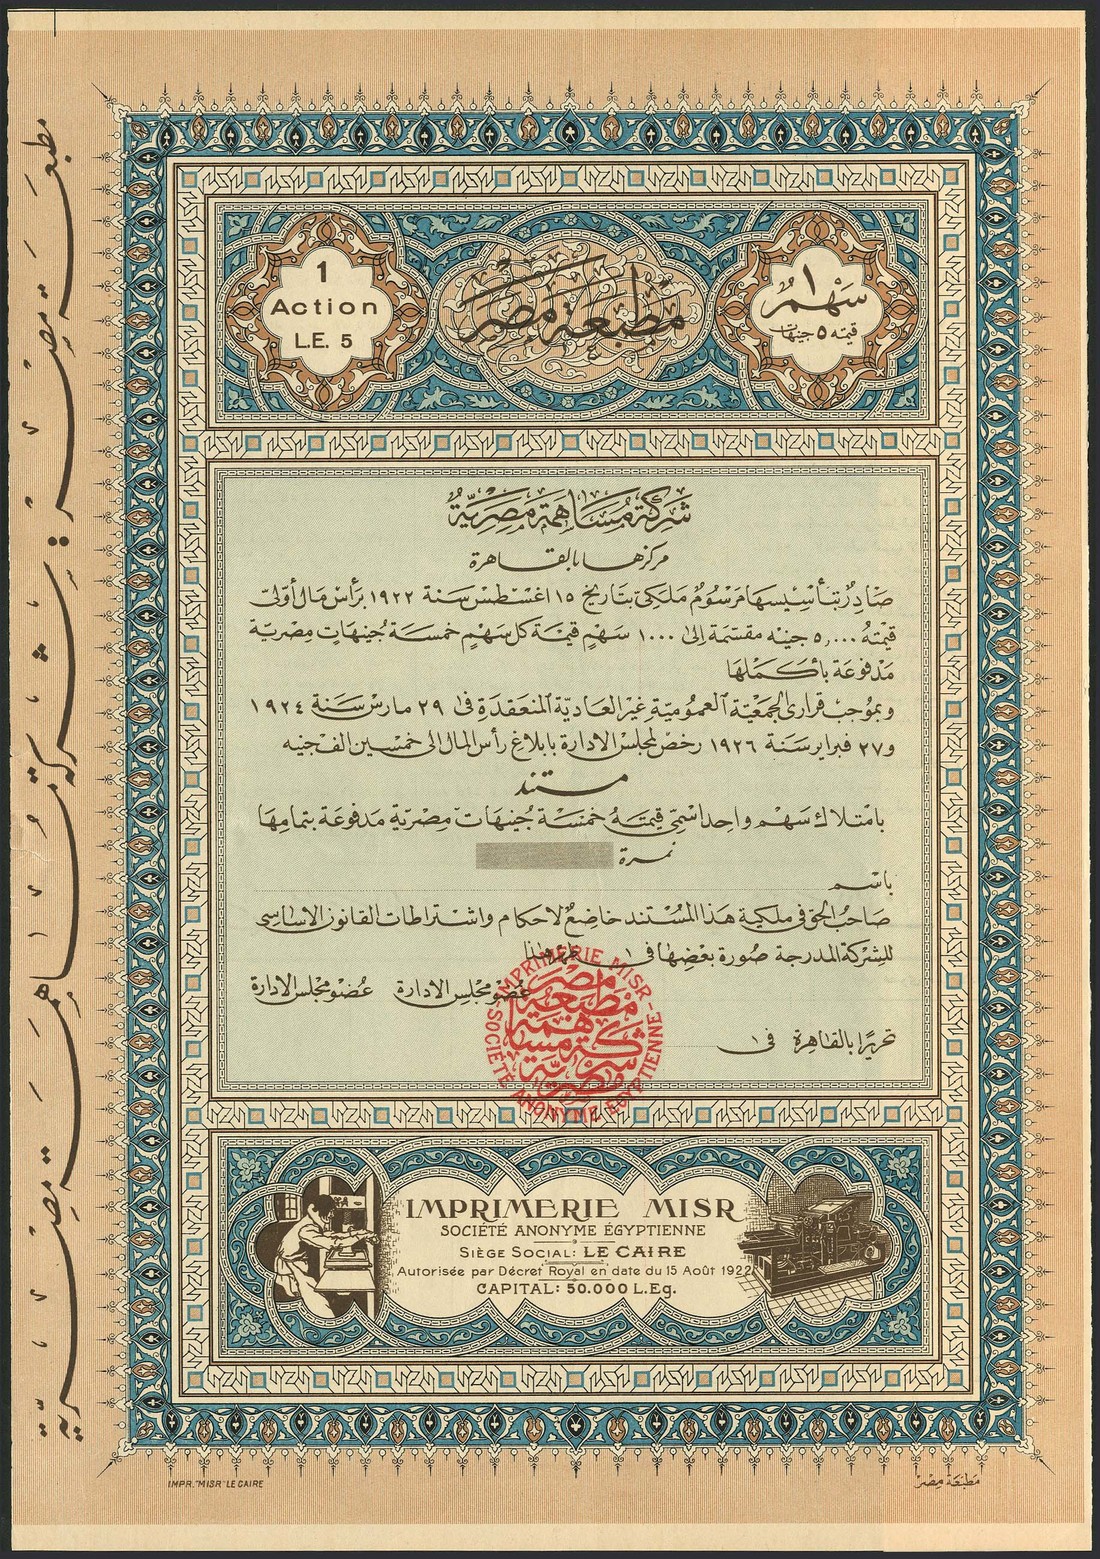 1
Action
L.E. 5
مطبعة مصر
١
سهم
قيمته ٥ جنيهات
شركة مساهمة مصرية
مركزها بالقاهرة
صادر بتأسيسها مرسوم ملكى بتاريخ ١٥ اغسطس سنة ١٩٢٢ برأس مال أوّلى
قيمته ٥,٠٠٠ جنيه مقسّمة إلى ١٠٠٠ سهم قيمة كل سهم خمسة جنيهات مصرية
مدفوعة بأكملها
وبموجب قرارى الجمعيّة العموميّة غير العاديّة المنعقدة فى ٢٩ مارس سنة ١٩٢٤
و٢٧ فبراير سنة ١٩٢٦ رخص لمجلس الادارة بابلاغ رأس المال الى خمسين الف جنيه
مستند
بامتلاك سهم واحد اسمّى قيمته خمسة جنيهات مصريّة مدفوعة بتمامها
نمرة
باسم
صاحب الحق فى ملكية هذا المستند خاضع لاحكام واشتراطات القانون الاساسى
للشركة المدرجة صورة بعضها فى
عضو مجلس الادارة عضو مجلس الادارة
تحريرًا بالقاهرة فى ١
IMPRIMERIE MISR - SOCIÉTÉ ANONYME EGYPTIENNE
مطبعة مصر
شركة مساهمة
مصرية
IMPRIMERIE MISR
SOCIÉTÉ ANONYME ÉGYPTIENNE
SIÈGE SOCIAL: LE CAIRE
Autorisée par Décret Royal en date du 15 Août 1922
CAPITAL: 50.000 L.Eg.
IMPR. "MISR" LE CAIRE
مطبعة مصر
مطبعة مصر : شركة مساهمة مصرية